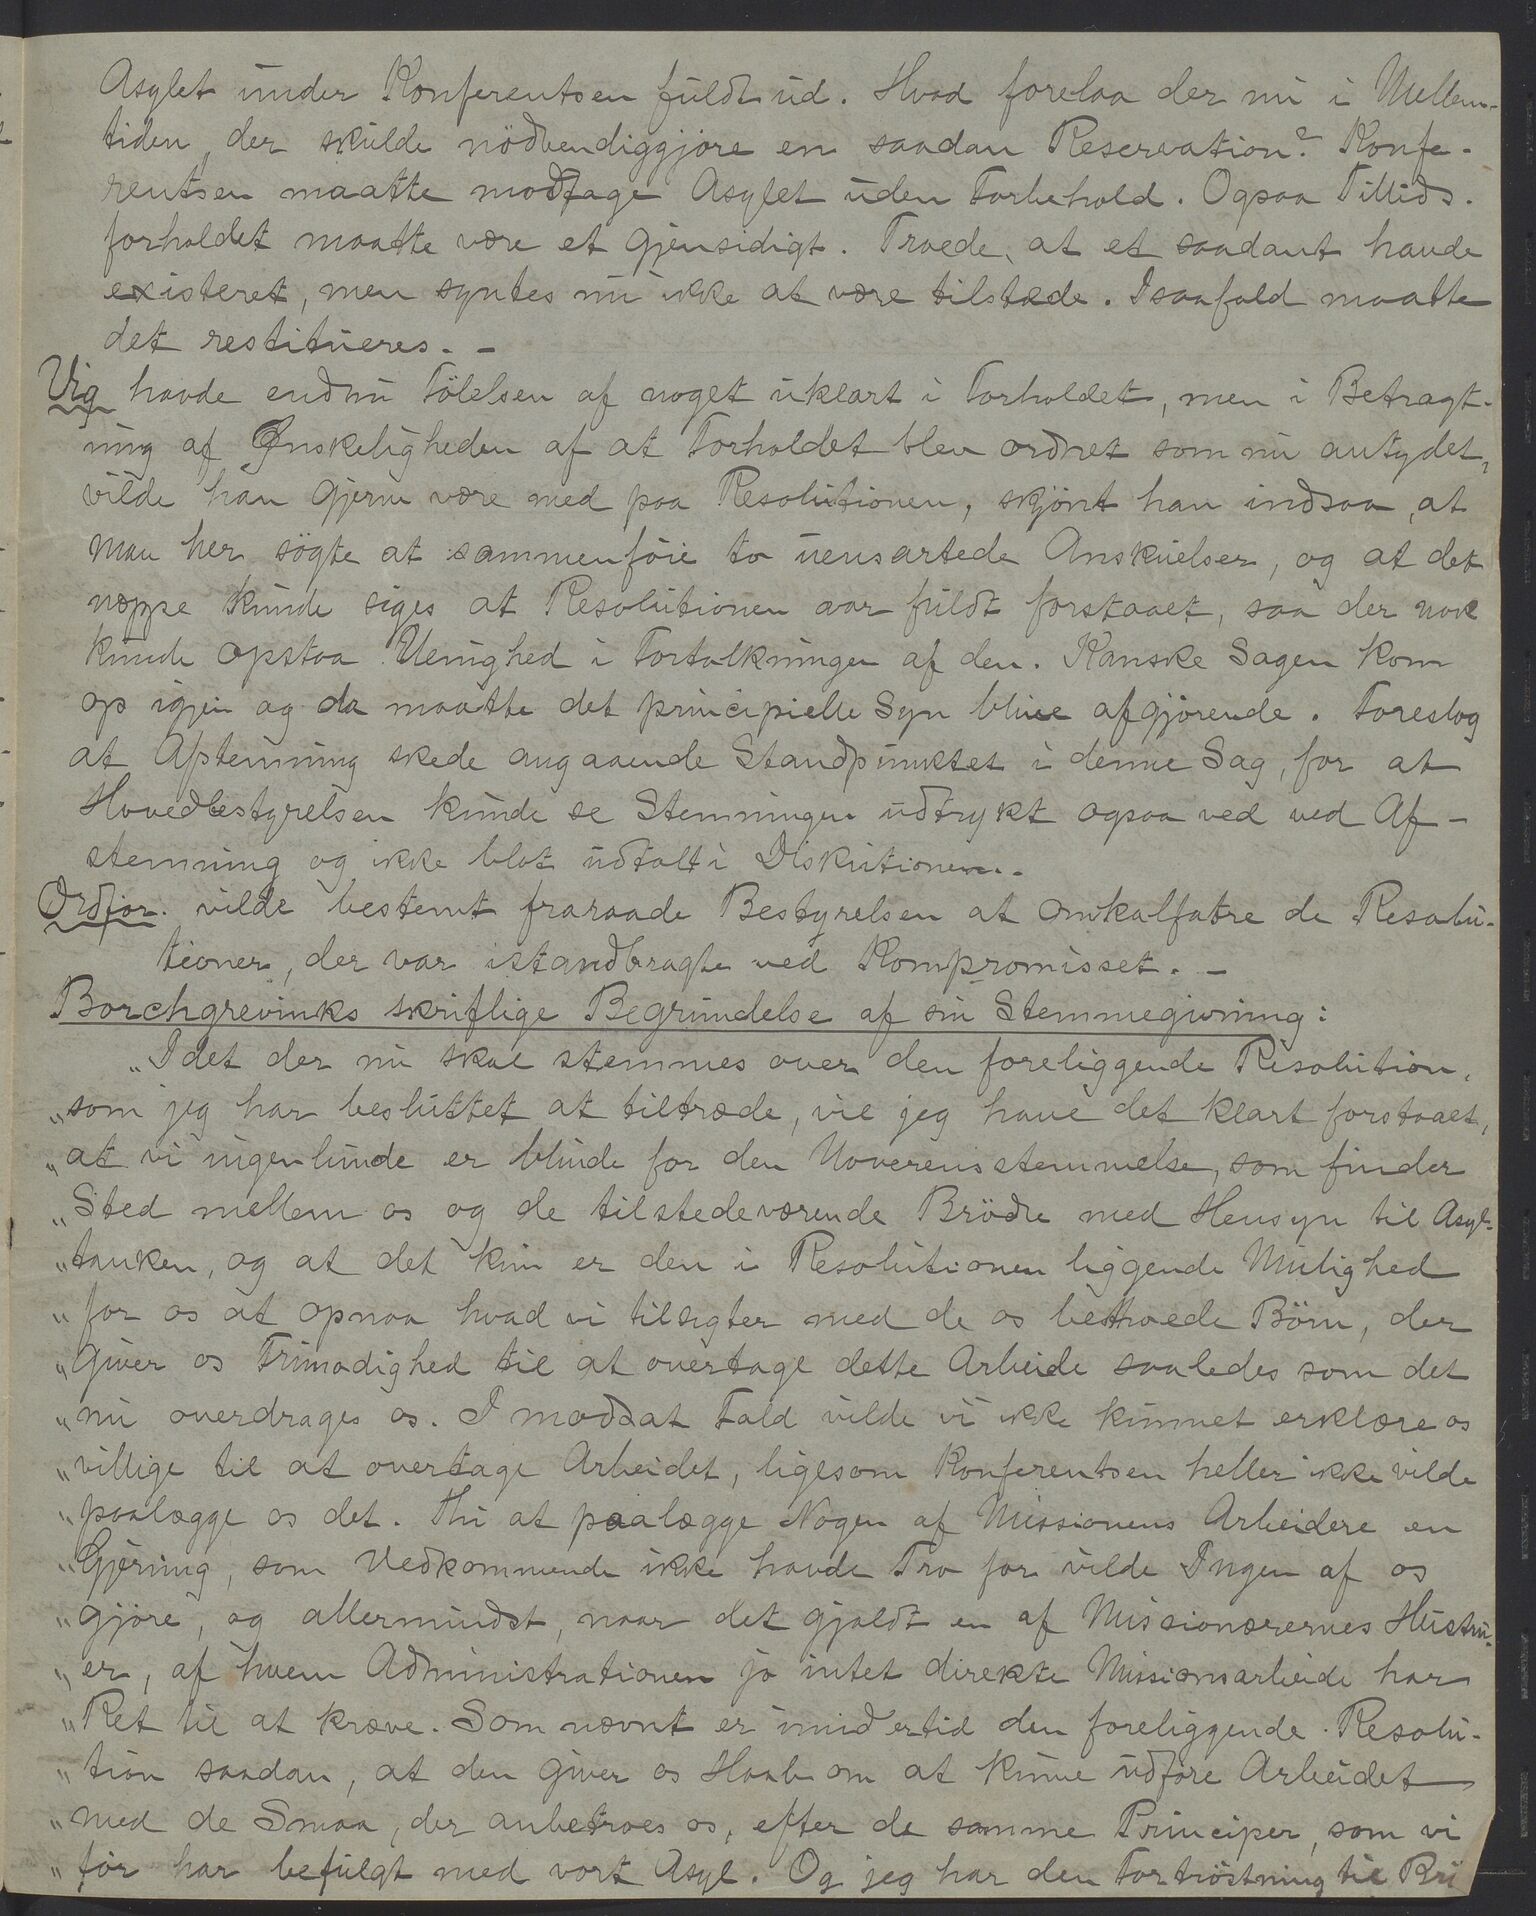 Asylet under Konferentsen fuldt ud. Hvad forelaa der nu i Mellem-
tiden, der skulde nödvendiggjøre en saadan Reservation? Konfe-
rentsen maatte modtage Asylet uden Forbehold. Ogsaa Tillids-
forholdet maatte være et gjensidigt. Troede, at et saadant havde
existeret, men syntes nu ikke at være tilstæde. Isaafald maatte
det restitueres. -
Vig havde endnu Fölelsen af noget uklart i Forholdet, men i Betragt-
ning af Ønskeligheden af at Forholdet blev ordnet som nu antydet,
vilde han gjerne være med paa Resolutionen, skjönt han indsaa, at
man her sögte at sammenföie to uensartede Anskuelser, og at det
neppe kunde siges at Resolutionen var fuldt forstaaet, saa der nok
kunde opstaa Uenighed i Fortolkningen af den. Kanske Sagen kom
op igjen og da maatte det principielle Syn blive afgjørende. Foreslog
at Afstemning skede angaaende Standpunktet i denne Sag, for at
Hovedbestyrelsen kunde se Stemningen udtrykt ogsaa ved ved Af-
stemning og ikke blot udtalt i Diskutionen. -
Ordför. vilde bestemt fraraade Bestyrelsen at omkalfatre de Resolu-
tioner, der var istandbragte ved Kompromisset. -
Borchgrevinks skriftlige Begrundelse af sin Stemmegivning:
„Idet der nu skal stemmes over den foreliggende Resolution,
„som jeg har besluttet at tiltræde, vil jeg have det klart forstaaet,
„at vi ingenlunde er blinde for den Uoverensstemmelse, som finder
„Sted mellem os og de tilstedeværende Brödre med Hensyn til Asyl-
„tanken, og at det kun er den i Resolutionen liggende Mulighed
„for os at opnaa hvad vi tilsigter med de os betroede Börn, der
„giver os Frimodighed til at overtage dette Arbeide saaledes som det
„nu overdrages os. I modsat Fald vilde vi ikke kunnet erklære os
„villige til at overtage Arbeidet, ligesom Konferentsen heller ikke vilde
„paalægge os det. Thi at paalægge Nogen af Missionens Arbeidere en
„Gjerning, som Vedkommende ikke havde Tro for vilde Ingen af os
„gjöre, og allermindst, naar det gjaldt en af Missionærernes Hustru-
„er, af hvem Administrationen jo intet direkte Missionsarbeide har
„Ret til at kræve. Som nævnt er imidlertid den foreliggende Resolu-
„tion saadan, at den giver os Haab om at kunne udføre Arbeidet
„med de Smaa, der anbetroes os, efter de samme Principer, som vi
„för har befulgt med vort Asyl. Og jeg har den Fortröstning til Brö